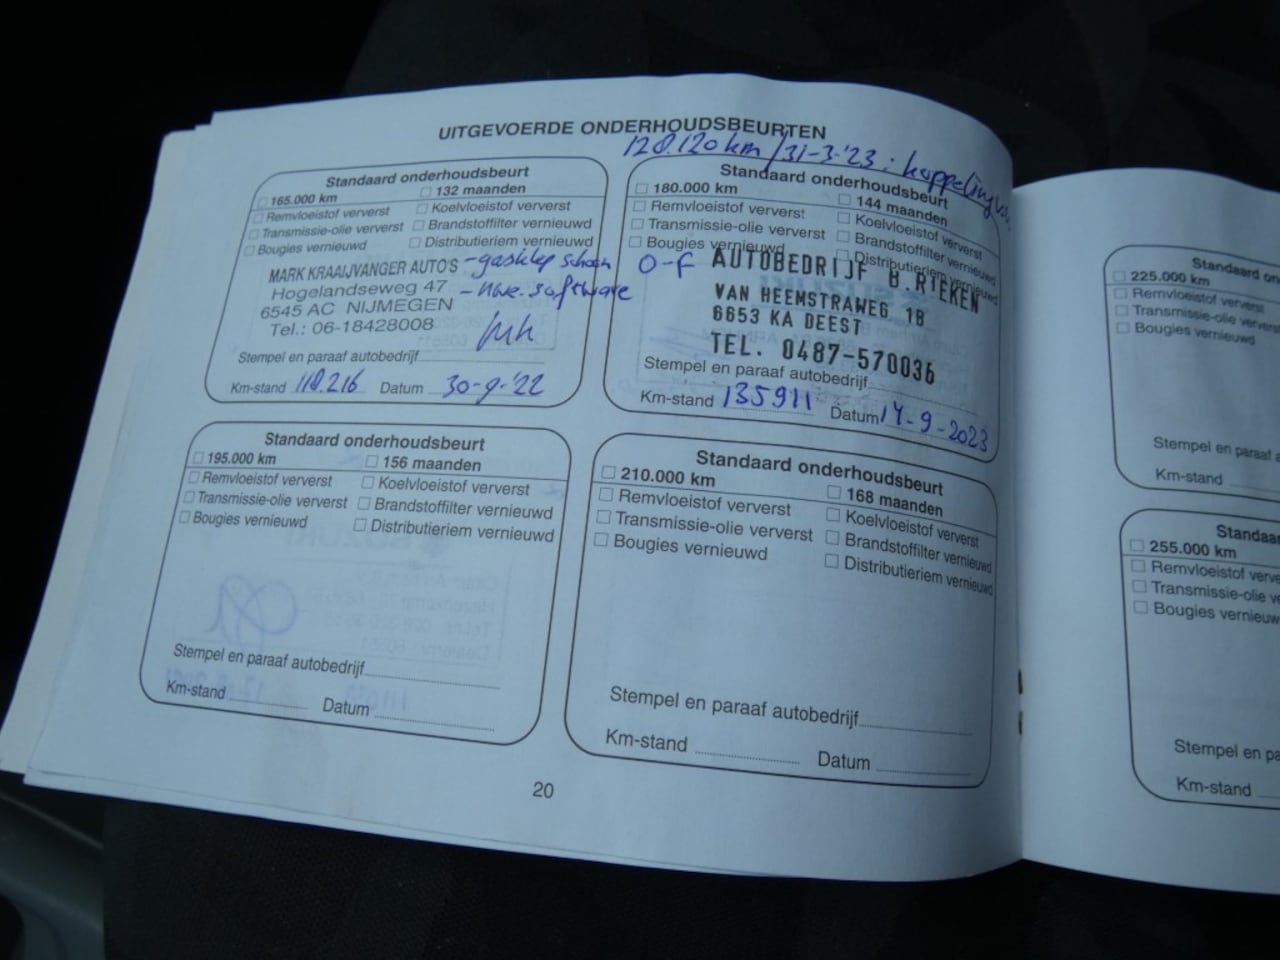 UITGEVOERDE ONDERHOUDSBEURTEN
128.120 km / 31-3-'23 :
Standaard onderhoudsbeurt
165.000 km 132 maanden
Remvloeistof ververst Koelvloeistof ververst
Transmissie-olie ververst Brandstoffilter vernieuwd
Bougies vernieuwd Distributieriem vernieuwd
MARK KRAAIJVANGER AUTO'S - gasklep schoon
Hogelandseweg 47 - nwe. software
6545 AC NIJMEGEN
Tel.: 06-18428008
Stempel en paraaf autobedrijf
Km-stand 118.216 Datum 30-9-'22
Standaard onderhoudsbeurt
180.000 km 144 maanden
Remvloeistof ververst Koelvloeistof ververst
Transmissie-olie ververst Brandstoffilter vernieuwd
Bougies vernieuwd Distributieriem vernieuwd
O-F AUTOBEDRIJF B.RIEKEN
VAN HEEMSTRAWEG 18
6653 KA DEEST
TEL. 0487-570036
Stempel en paraaf autobedrijf
Km-stand 135911 Datum 14-9-2023
Standaard onderhoudsbeurt
195.000 km 156 maanden
Remvloeistof ververst Koelvloeistof ververst
Transmissie-olie ververst Brandstoffilter vernieuwd
Bougies vernieuwd Distributieriem vernieuwd
Stempel en paraaf autobedrijf
Km-stand Datum
Standaard onderhoudsbeurt
210.000 km 168 maanden
Remvloeistof ververst Koelvloeistof ververst
Transmissie-olie ververst Brandstoffilter vernieuwd
Bougies vernieuwd Distributieriem vernieuwd
Stempel en paraaf autobedrijf
Km-stand Datum
20
Standaard on
225.000 km
Remvloeistof ververst
Transmissie-olie ververs
Bougies vernieuwd
Stempel en paraaf a
Km-stand
Standaa
255.000 km
Remvloeistof verve
Transmissie-olie ve
Bougies vernieuwd
Stempel en pa
Km-stand